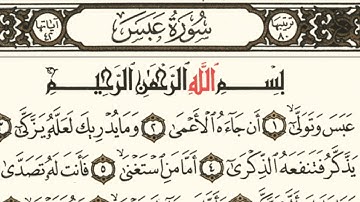 ترتيبها ٨٠ سُورَةُ عَبَسَ آياتها ٤٢
بِسْمِ ٱللَّهِ ٱلرَّحْمَٰنِ ٱلرَّحِيمِ
عَبَسَ وَتَوَلَّىٰٓ ١ أَن جَآءَهُ ٱلْأَعْمَىٰ ٢ وَمَا يُدْرِيكَ لَعَلَّهُۥ يَزَّكَّىٰٓ ٣
يَذَّكَّرُ فَتَنفَعَهُ ٱلذِّكْرَىٰٓ ٤ أَمَّا مَنِ ٱسْتَغْنَىٰ ٥ فَأَنتَ لَهُۥ تَصَدَّىٰ